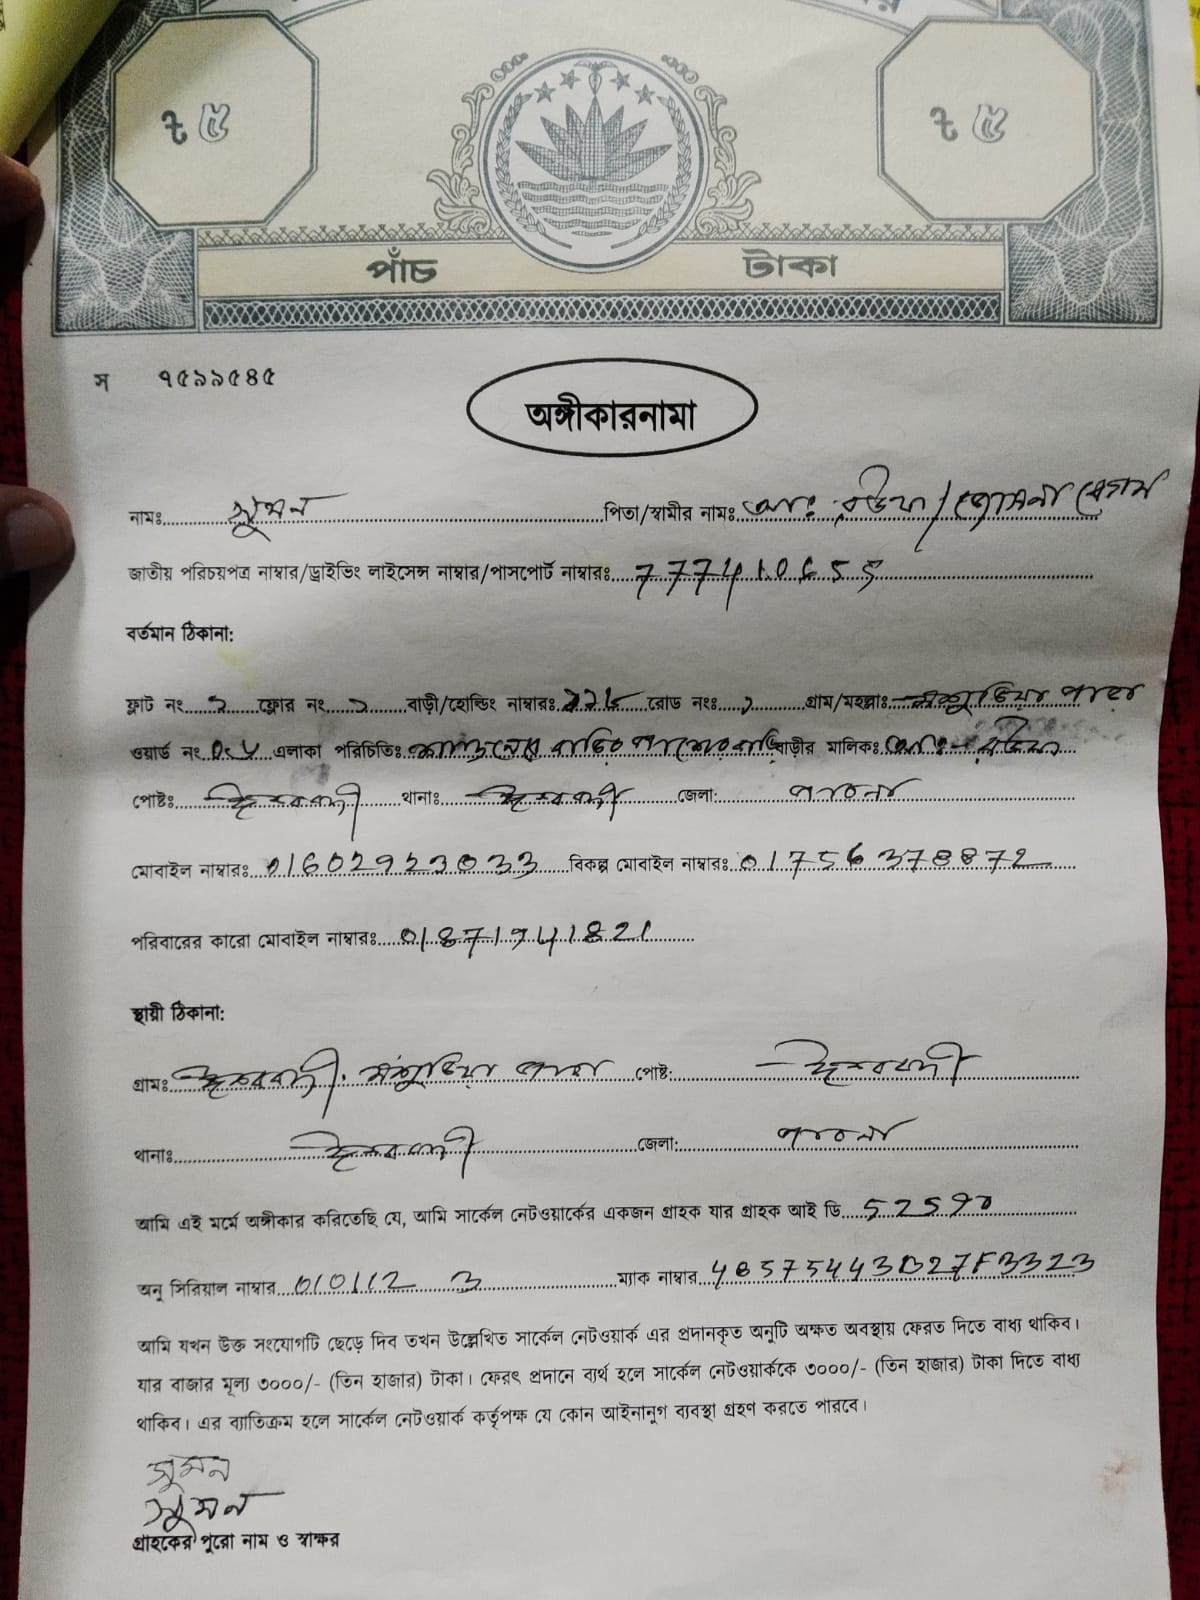 ৳ ৫ ৳ ৫
পাঁচ টাকা
স ৭৫৯৯৫৪৫
অঙ্গীকারনামা
নামঃ সুমন পিতা/স্বামীর নামঃ মোঃ
জাতীয় পরিচয়পত্র নাম্বার/ড্রাইভিং লাইসেন্স নাম্বার/পাসপোর্ট নাম্বারঃ
বর্তমান ঠিকানা:
ফ্লাট নং ফ্লোর নং বাড়ী/হোল্ডিং নাম্বারঃ রোড নংঃ গ্রাম/মহল্লাঃ পাড়া
ওয়ার্ড নং এলাকা পরিচিতিঃ বাড়ির পাশের বাড়ি বাড়ীর মালিকঃ মোঃ
পোষ্টঃ ঈশ্বরদী থানাঃ ঈশ্বরদী জেলা: পাবনা
মোবাইল নাম্বারঃ 01602923033 বিকল্প মোবাইল নাম্বারঃ 01756378872
পরিবারের কারো মোবাইল নাম্বারঃ 01871941821
স্থায়ী ঠিকানা:
গ্রামঃ ঈশ্বরদী পাড়া পোষ্ট: ঈশ্বরদী
থানাঃ ঈশ্বরদী জেলা: পাবনা
আমি এই মর্মে অঙ্গীকার করিতেছি যে, আমি সার্কেল নেটওয়ার্কের একজন গ্রাহক যার গ্রাহক আই ডি
অনু সিরিয়াল নাম্বার ম্যাক নাম্বার
আমি যখন উক্ত সংযোগটি ছেড়ে দিব তখন উল্লেখিত সার্কেল নেটওয়ার্ক এর প্রদানকৃত অনুটি অক্ষত অবস্থায় ফেরত দিতে বাধ্য থাকিব।
যার বাজার মূল্য ৩০০০/- (তিন হাজার) টাকা। ফেরৎ প্রদানে ব্যর্থ হলে সার্কেল নেটওয়ার্ককে ৩০০০/- (তিন হাজার) টাকা দিতে বাধ্য
থাকিব। এর ব্যাতিক্রম হলে সার্কেল নেটওয়ার্ক কর্তৃপক্ষ যে কোন আইনানুগ ব্যবস্থা গ্রহণ করতে পারবে।
সুমন
সুমন
গ্রাহকের পুরো নাম ও স্বাক্ষর